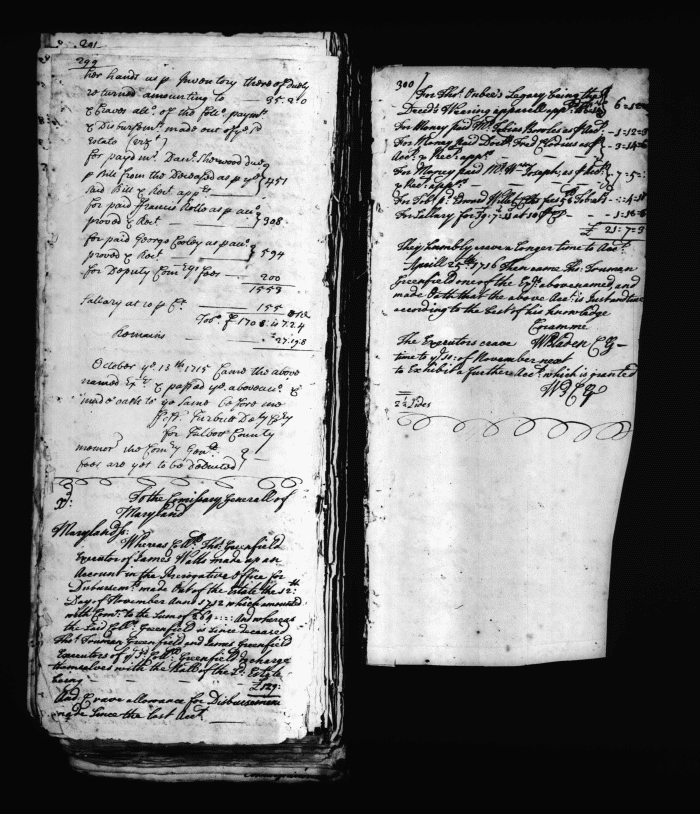 291
299
her hands as p Inventory thereof duely
returned amounting to — 35..2..0
& Craves alle. of the follo. paymts.
& Disbursemts. made out of ye sd
Estate (vizt)
for payd mr. Danl. Sherwood due
p Bill from the Deceased as p ye 451
said Bill & Rect. apprs
for paid Francis Rolle as p acct.
proved & Rect 308
for paid George Cooley as p acct.
proved & Rect — 594
for Deputy Comrys fees — 200
1553
Sallary at 10 p Ct. — 155
Tobo. 1708 is 7.2.4
Remains — 27.19.8
October ye. 13th 1715 Came the above
named & passed ye. above acct. &
made oath to ye same before me
Furbutt Dety Comry
for Talbott County
memor. the Comry Genll.
fees are yet to be deducted
To the Comissary Generall of
Maryland
Maryland ss:
Whereas Collo. Thos. Greenfield
Executor of James Watts made up an
Account in the Prerogative Office for
Disbursemts. made Out of the Estate the 12th
Day of November Anno 1712 which amounted
with Comn. to the Sum of £64 And whereas
the Said Collo. Greenfield is Since deceased
Thos. Truman Greenfield and James Greenfield
Executors of ye sd Collo. Greenfield Charge
themselves with the Ball. of the sd. Estate
being — £129:
And Crave allowance for Disbursements
made Since the last Acct.
300
For Thos. Legacy being the
Deceds. Wearing apparell 6=12=
For Money paid Mr. Tobias Bowles as p Rect. 1:12=3
For Money paid Doctr. Fred Clodius as p
Acct. & Rect. apprs. 3:14=6
For Money paid Mr. Wm. Joseph, as p Acct.
& Rect. apprs. 7=5=
For Tobo. pd. Edward Willett
For Sallary for 19:7:11 at 10 p Ct — 1:18=
£ 21=7=3
They humbly crave a longer time to Acct.
Aprill 25th 1716 Then came Thos. Truman
Greenfield one of the Exrs. above named, and
made Oath that the above Acct. is Just and true
according to the best of his knowledge
Coram me
The Executors crave W Bladen C G
time to ye 10: of November next
to Exhibit a further Acct. which is granted
W B C G
2½ Sides